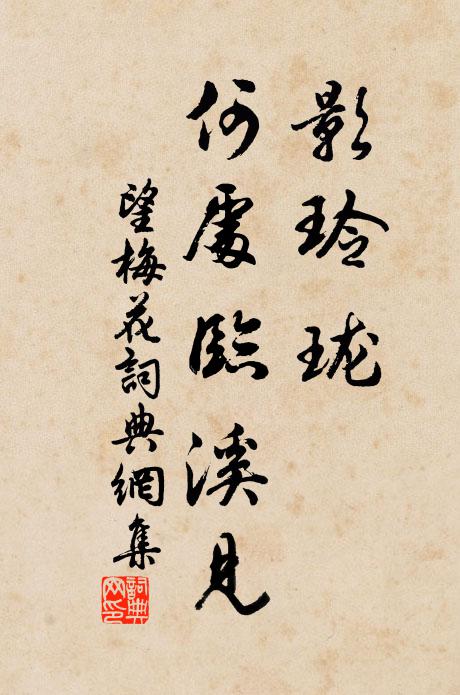 影玲珑
何處臨溪見
望梅花詞典網集
詞典網印